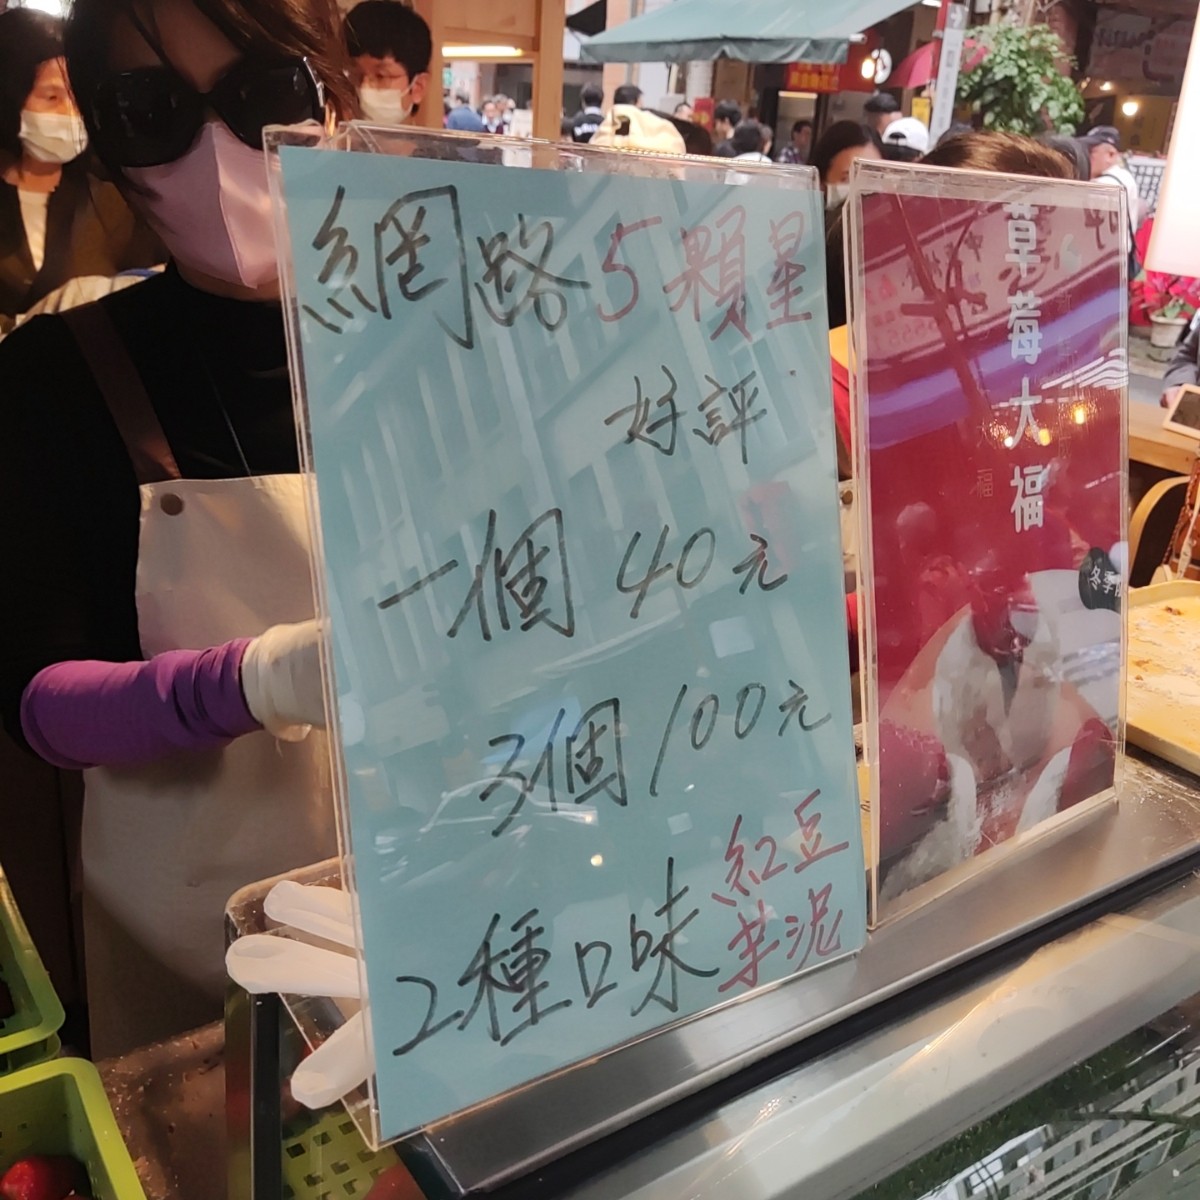 網路5顆星
好評
一個40元
3個100元
2種口味 紅豆
芋泥
草莓大福
冬季